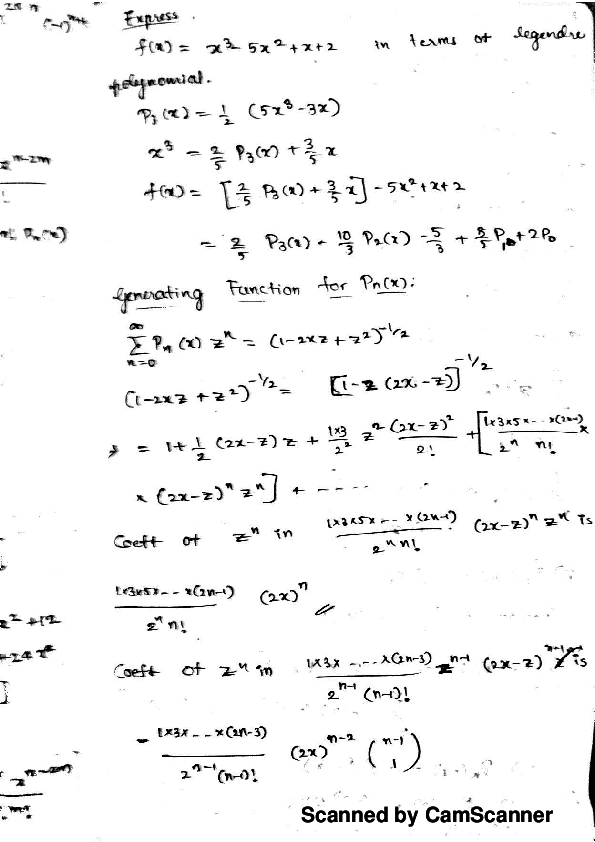 Express
f(x) = x³ - 5x² + x + 2 in terms of legendre
polynomial.
P₃(x) = 1/2 (5x³ - 3x)
x³ = 2/5 P₃(x) + 3/5 x
f(x) = [2/5 P₃(x) + 3/5 x] - 5x² + x + 2
= 2/5 P₃(x) - 10/3 P₂(x) - 5/3 + 8/5 P₁ + 2P₀
Generating Function for Pn(x):
∞
∑ Pn(x) zⁿ = (1-2xz+z²)^(-1/2)
n=0
(1-2xz+z²)^(-1/2) = [1-z(2x-z)]^(-1/2)
= 1 + 1/2 (2x-z) z + 1×3/2² z² (2x-z)²/2! + [1×3×5×---×(2n-1)/2ⁿ n! ×
× (2x-z)ⁿ zⁿ] + -----
Coeft of zⁿ in 1×3×5×---×(2n-1)/2ⁿ n! (2x-z)ⁿ zⁿ is
1×3×5×---×(2n-1)/2ⁿ n! (2x)ⁿ
Coeft of zⁿ in 1×3×----×(2n-3)/2ⁿ⁻¹ (n-1)! zⁿ⁻¹ (2x-z)ⁿ⁻¹ is
- 1×3×---×(2n-3)/2ⁿ⁻¹ (n-1)! (2x)ⁿ⁻² (n-1 1)
Scanned by CamScanner